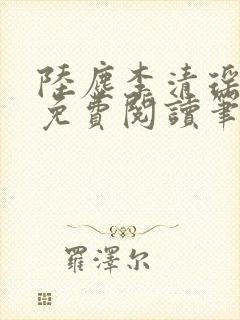 陸塵李清瑤
免費閱讀筆
羅澤尔